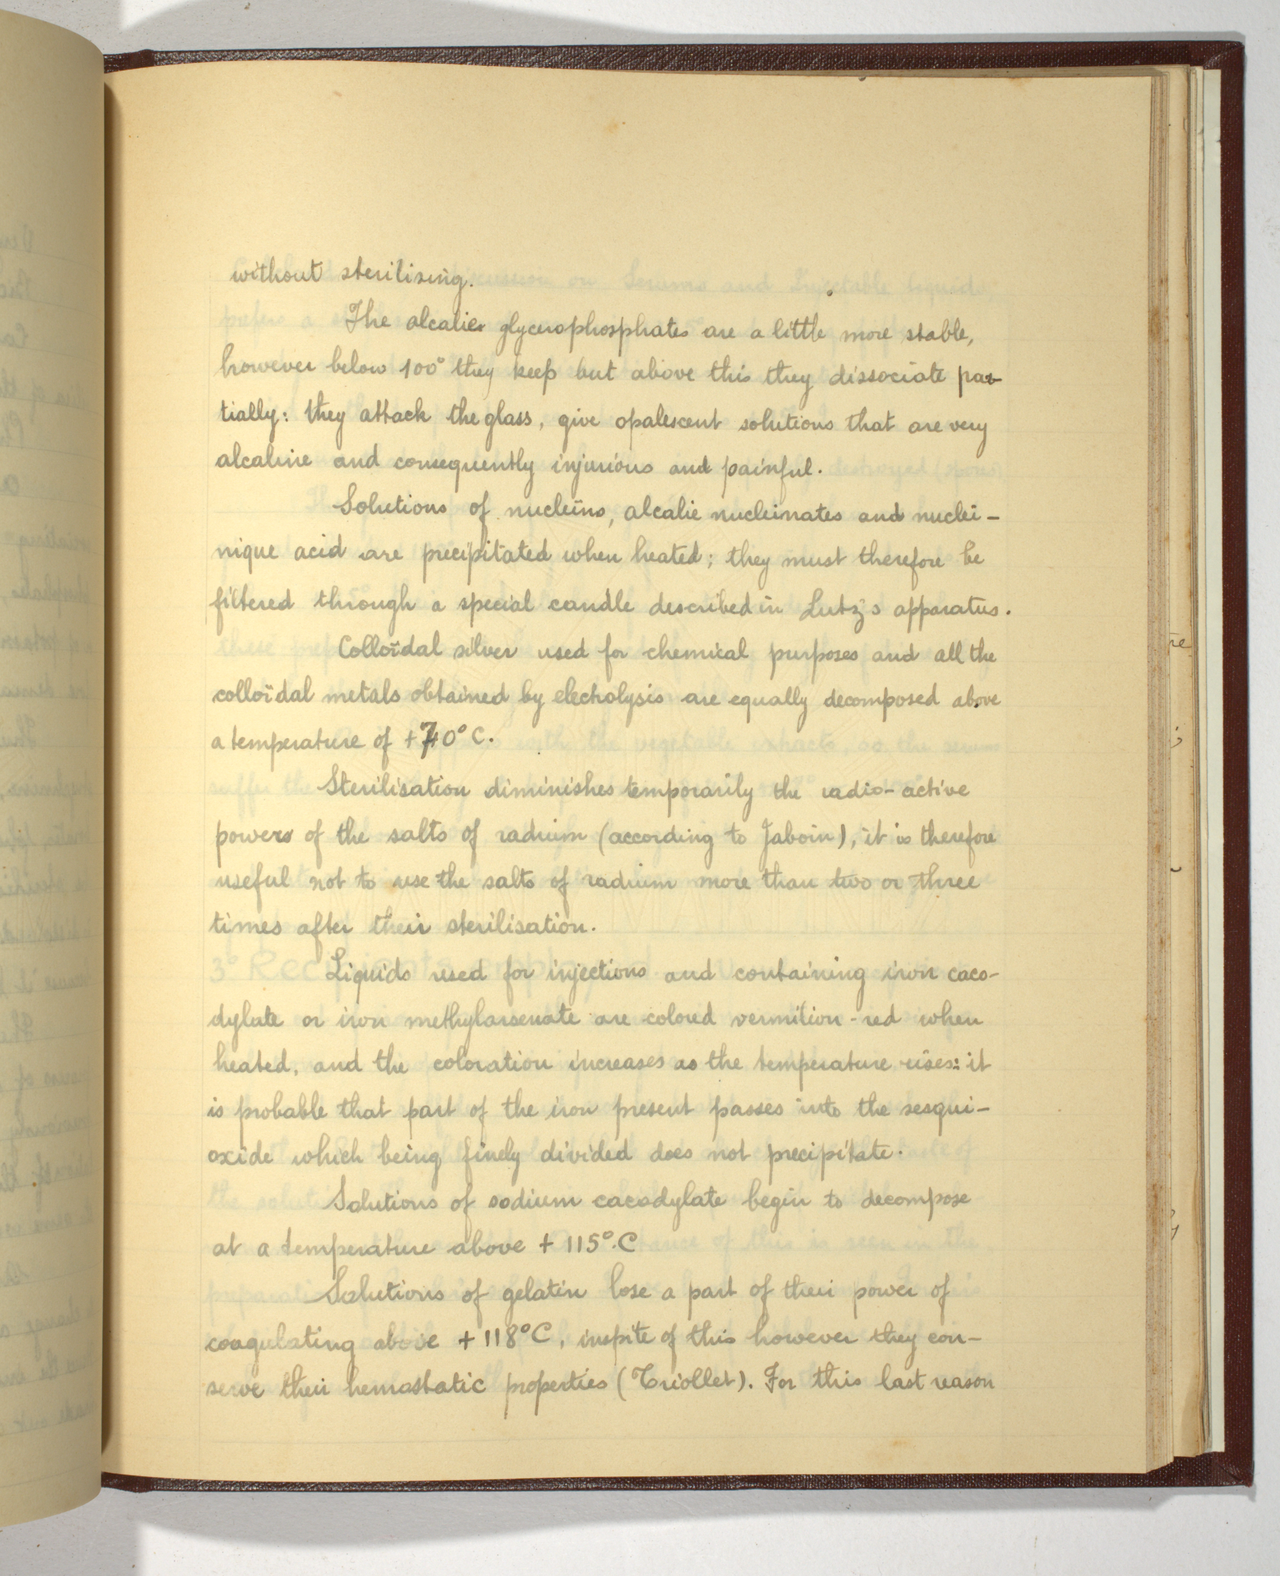 without sterilising.
The alcalie glycerophosphates are a little more stable,
however below 100° they keep but above this they dissociate par-
tially: they attack the glass, give opalescent solutions that are very
alcaline and consequently injurious and painful.
Solutions of nucleïns, alcalie nucleinates and nuclei-
nique acid are precipitated when heated; they must therefore be
filtered through a special candle described in Lutz's apparatus.
Colloïdal silver used for chemical purposes and all the
colloïdal metals obtained by electrolysis are equally decomposed above
a temperature of +70° C.
Sterilisation diminishes temporarily the radio-active
powers of the salts of radium (according to Jaboin), it is therefore
useful not to use the salts of radium more than two or three
times after their sterilisation.
Liquids used for injections and containing iron caco-
dylate or iron methylarsenate are colored vermilion-red when
heated, and the coloration increases as the temperature rises: it
is probable that part of the iron present passes into the sesqui-
oxide which being finely divided does not precipitate.
Solutions of sodium cacodylate begin to decompose
at a temperature above + 115°.C
Solutions of gelatin lose a part of their power of
coagulating above + 118°C, inspite of this however they con-
serve their hemostatic properties (Triollet). For this last reason